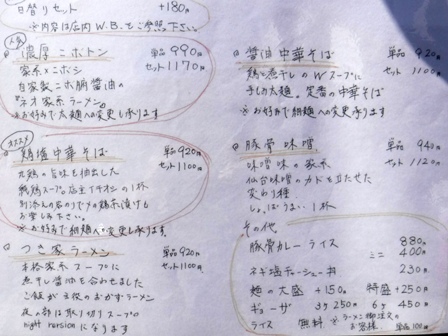 日替りセット +180円
※内容は店内W.B.をご参照下さい
人気
濃厚ニボトン 単品990円
家系×ニボシ セット1170円
自家製ニボ胴醤油の
ネオ家系ラーメン。
※お好みで太麺への変更も承ります
オススメ
鶏塩中華そば 単品920円
丸鶏の旨味を抽出した セット1100円
純鶏スープ
お楽しみ下さい。
※お好みで細麺へ変更承ります
つき家ラーメン 単品920円
本格家系スープに セット1100円
煮干し醤油を合わせました
ご飯が主役のおかずラーメン
夜の部は取り切りスープの
night version になります
醤油中華そば 単品920
鶏と煮干しのWスープに セット1100
手もみ太麺。定番の中華そば
※お好みで細麺への変更も承ります
豚骨味噌 単品940
味噌味の家系 セット1120
仙台味噌のカドを立たせた
変わり種
しょっぱうまい1杯
その他
豚骨カレーライス 880円
ミニ 400
ネギ塩チャーシュー丼 230円
麺の大盛 +150円 特盛 +250円
ギョーザ 3ヶ 250円 6ヶ 450円
ライス 無料 ※ラーメン御注文のお客様 単品100円